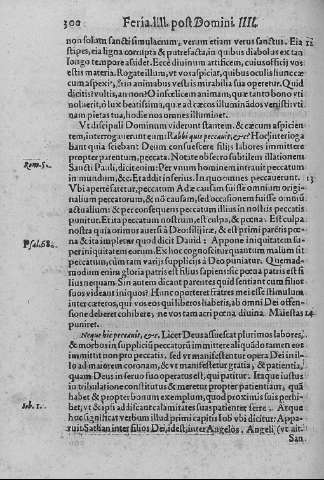 300 Feria. IIII. post Domini. IIII.
non solum sancti simulacrum, verum etiam verus sanctus. Eia 12
stipes, eia ligna corrupta & putrefacta, in quibus diabolus ex tam
longo tempore assidet. Ecce divinum artificem, cuius officij vos
estis materia. Rogate illum, vt vos aspiciat, quibus oculis hunc cæ
cum aspexit, & in animabus vestris mirabilia sua operetur. Quid
dicitis: vultis, an non? O infœlicem animam, quæ tanto bono vti
noluerit, ô lux beatissima, quæ ad cæcos illuminãdos venisti: vti
nam pietas tua, hodie nos omnes illuminet.
Vt discipuli Dominum viderunt stantem, & cæcum aspicien
tem, interrogauerunt eum: Rabbi quis peccauit, &c? Hoc interroga
bant quia sciebant: Deum consueuisse filijs labores immittere
propter parentum, peccata. Notate obsecro subtilem illationem
Rom. 5. Sancti Pauli, dicentis: Per vnum hominem intrauit peccatum
in mundum, &c. Et addit inferius. In quo omnes peccauerunt. 13
Vbi aperte fatetur, peccatum Adæ causam fuisse omnium origi-
nalium peccatorum, & nõ causam, sed occasionem fuisse omniũ
actualium: & per consequens peccatum illius in nostris peccatis
punitur. Et ita peccatum nostrum, est culpa, & pœna. Est culpa
nostra quia orimur auersi à Deo filij iræ, & est pœ
Psal. 68. na & ita impletur quod dicit David: Appone iniquitatem su-
per iniquitatem eorum. Ex hoc cognoscitur quantum malum sit
peccatum, cùm tam varijs supplicijs à Deo puniatur. Quemad-
modum enim gloria patris est filius sapiens: sic pœna patris est fi
lius nequam. Sin autem dicant parentes quid sentiant cum filios
suos videant iniquos? Hunc oporteret fratres mei esse stimulum
inter cæteros, qui vos eò qui liberos habetis, ab omni Dei offen-
sione deberet cohibere; ne vos tam acri pœna diuina. Maiestas 14
puniret.
Neque hic peccauit, &c. Licet Deus assuescat plurimos labores,
& morbos in supplicium peccatorũ immittere: aliquãdo tamen eos
immittit non pro peccatis. sed vt manifestentur opera Dei in il-
lo ad maiorem coronam, & vt manifestetur gratia, & patientia,
quam Deus in seruo suo operatus est, qui patitur. Itaque iustus
in tribulatione constitutus & meretur propter patientiam, quã
habet & propter bonum exemplum, quod proximis suis perhi-
bet, vt & ipsi addiscant calamitates suas patienter ferre. Atque
Iob. 1. hoc significat verbum illud primi capitis Iob vbi dicitur: Appa-
ruit Sathan inter filios Dei, id est, inter Angelos. Angeli (vt ait
San